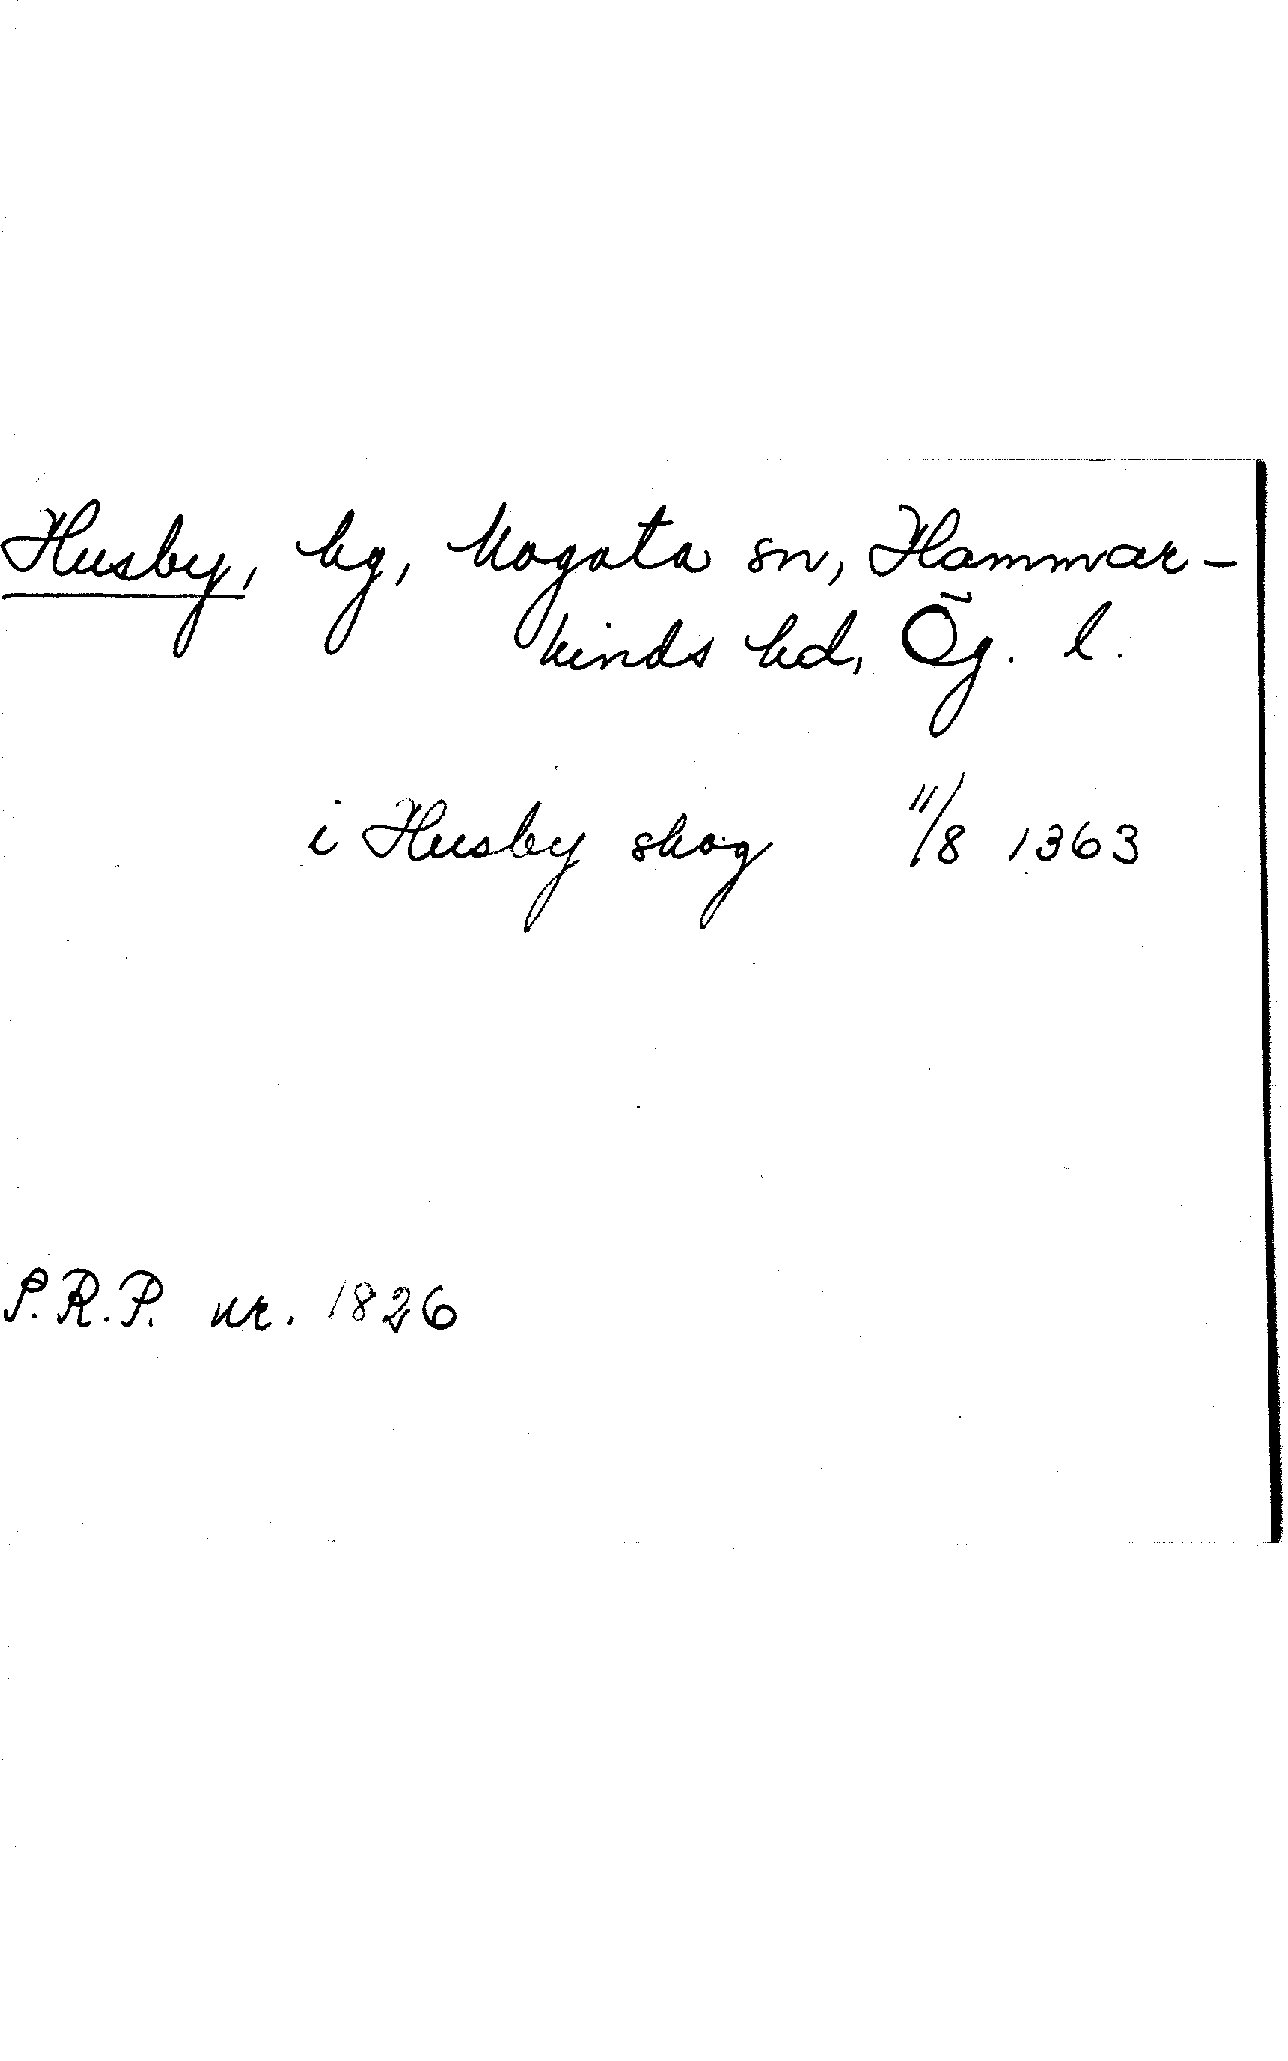 Husby, hg, Mogata sn, Hammar-
kinds hd, Ög. l.
i Husby skog 11/8 1363
S.R.P. nr. 1826